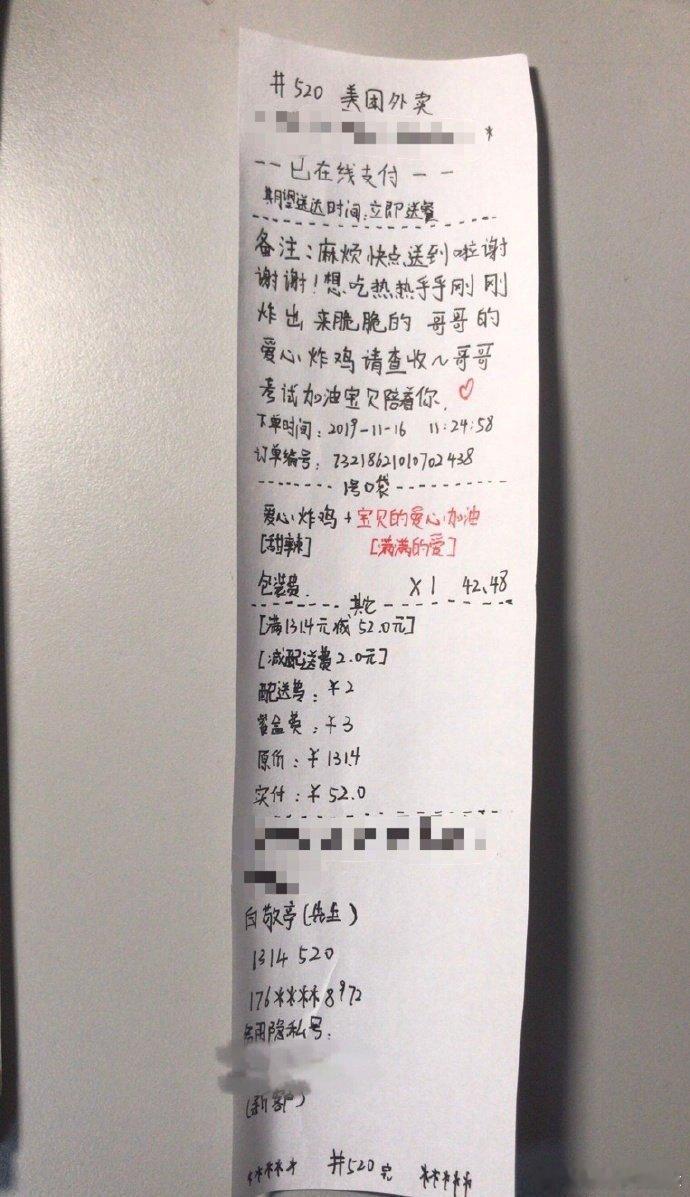 #520 美团外卖
*
-- 已在线支付 --
期望送达时间:立即送餐
备注:麻烦快点送到啦谢
谢谢!想吃热热乎乎刚刚
炸出来脆脆的 哥哥的
爱心炸鸡请查收~哥哥
考试加油宝贝陪着你.♡
下单时间:2019-11-16 11:24:58
订单编号:73218621010702438
1号口袋
爱心炸鸡+宝贝的爱心加油
[甜辣] [满满的爱]
包装费. X1 42.48
其它
[满131.4元减52.0元]
[减配送费2.0元]
配送费:¥2
餐盒费:¥3
原价:¥131.4
实付:¥52.0
白敬亭(先生)
1314520
176****8972
启用隐私号:
(新客户)
**** #520完 *****